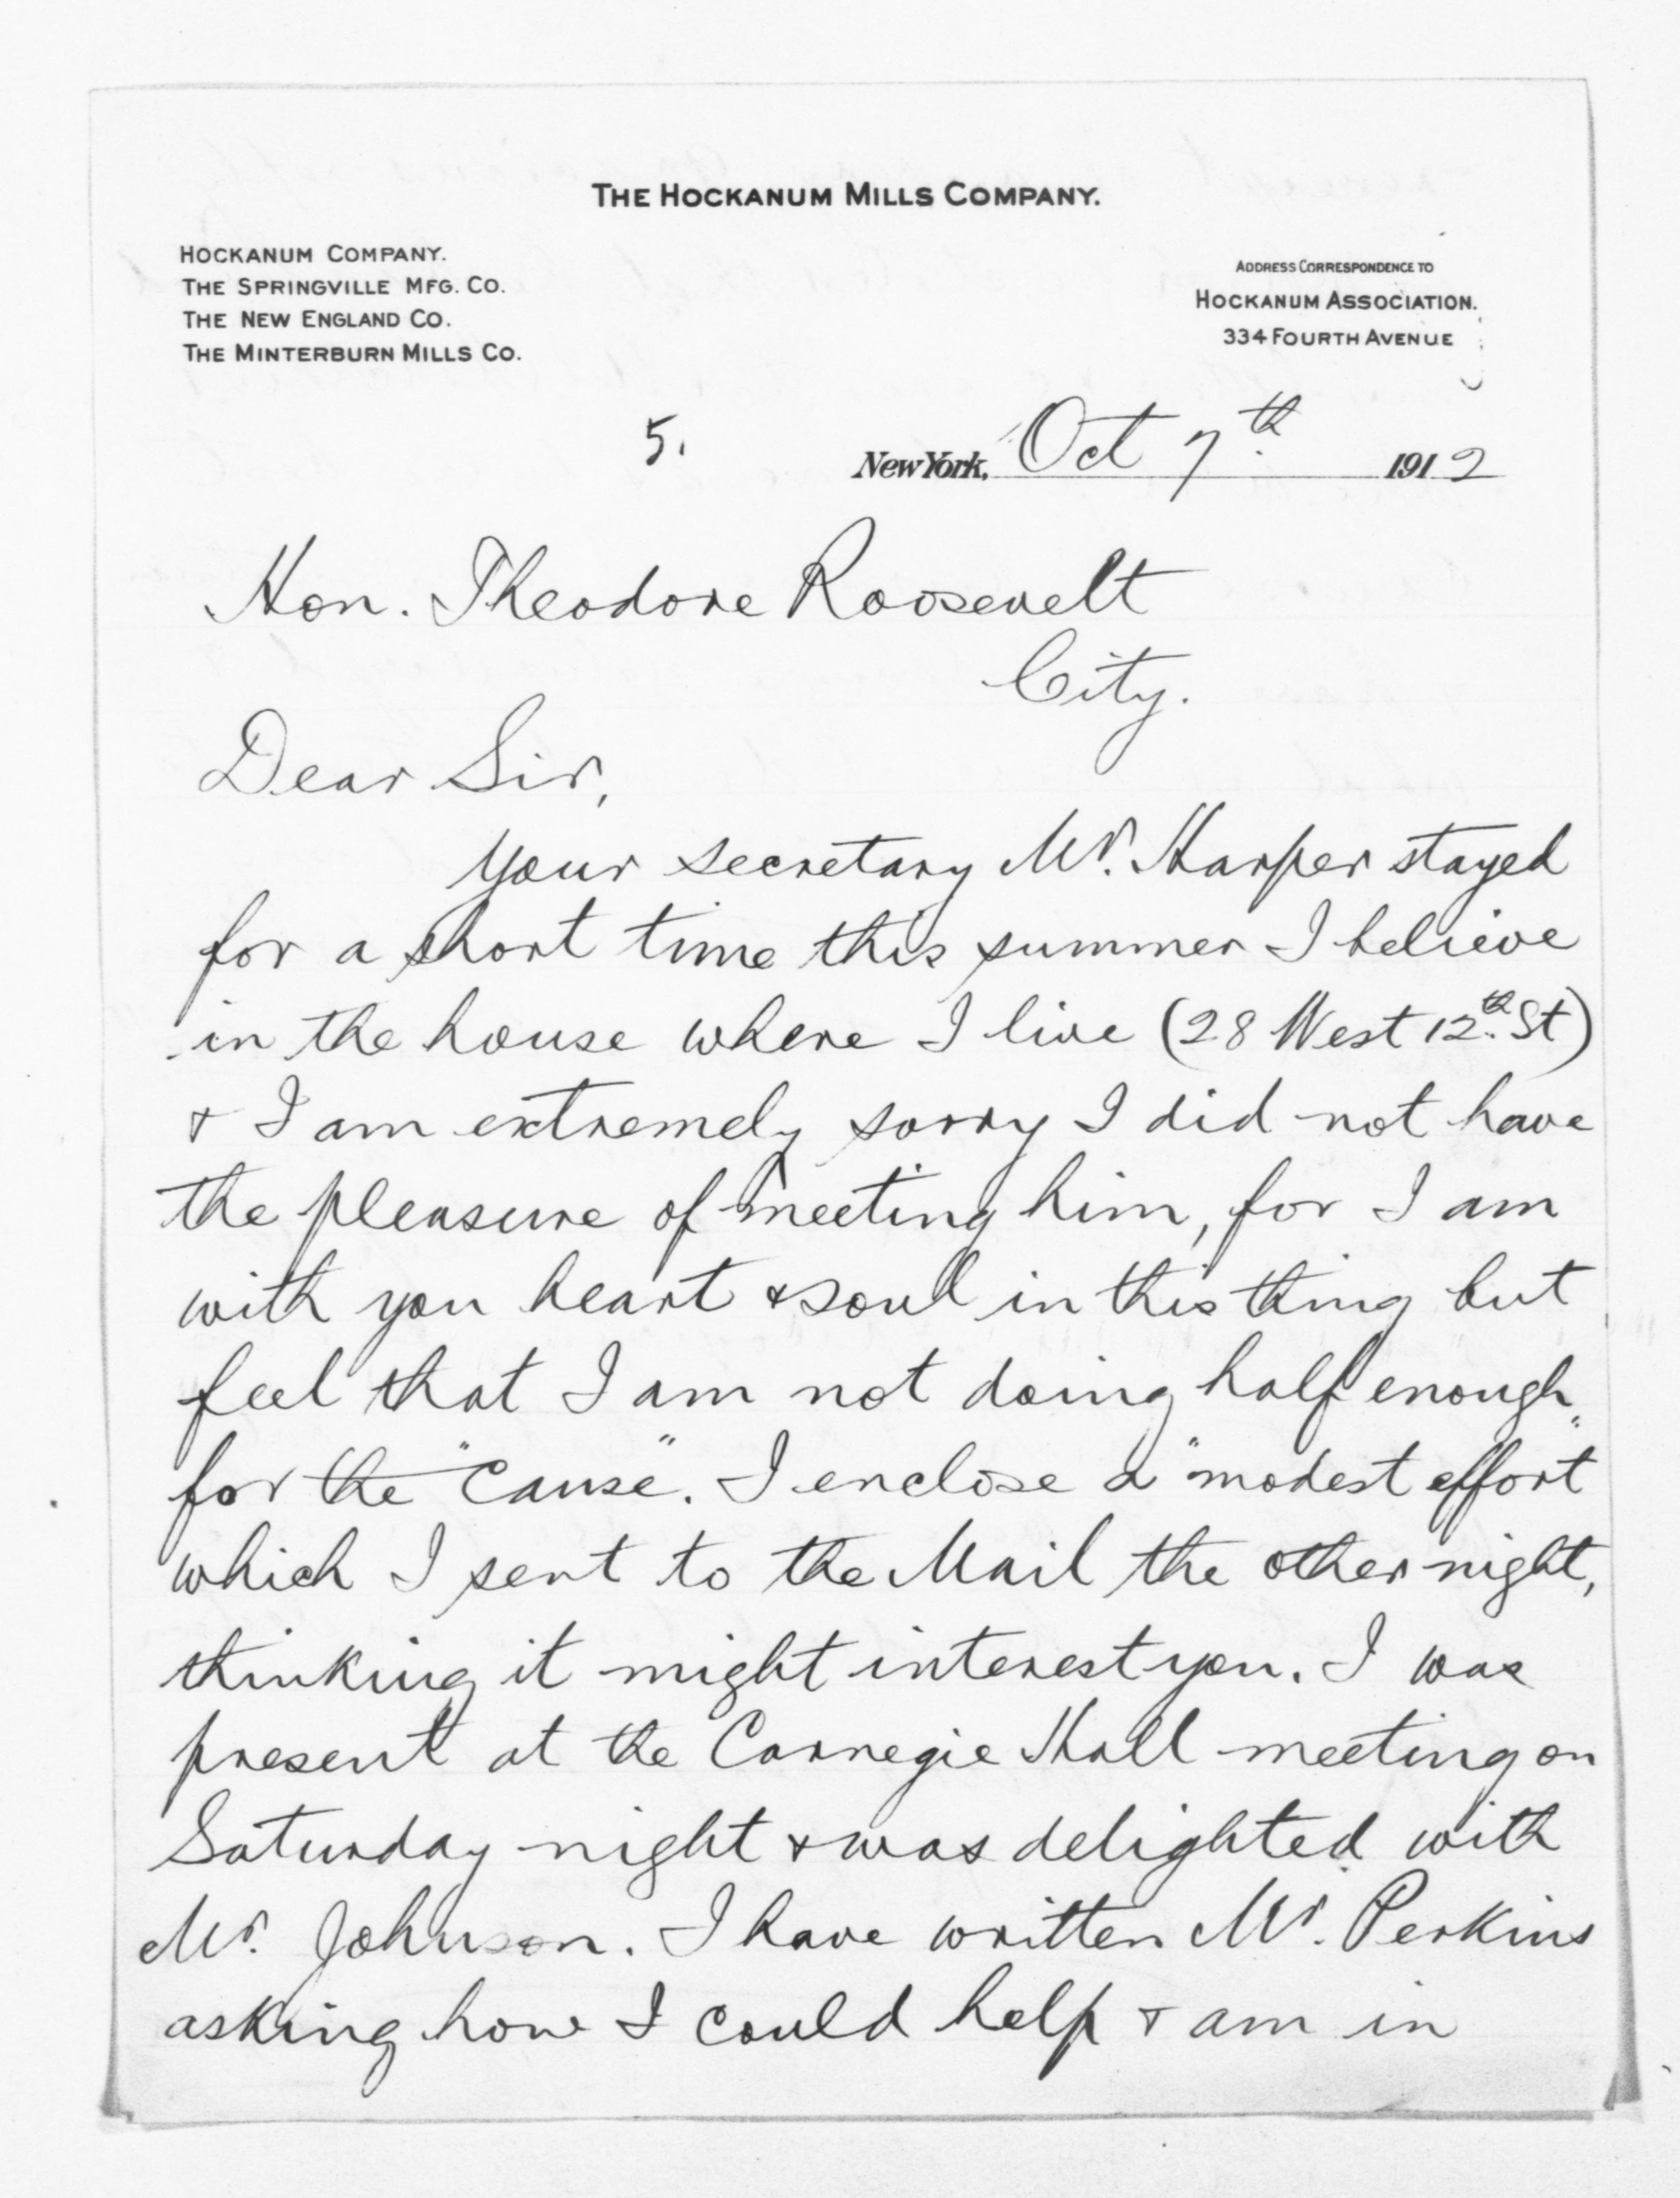 THE HOCKANUM MILLS COMPANY.
HOCKANUM COMPANY.
THE SPRINGVILLE MFG. CO.
THE NEW ENGLAND CO.
THE MINTERBURN MILLS CO.
ADDRESS CORRESPONDENCE TO
HOCKANUM ASSOCIATION.
334 FOURTH AVENUE
5.
New York, Oct 7th 1912
Hon. Theodore Roosevelt
City.
Dear Sir,
Your secretary Mr. Harper stayed
for a short time this summer I believe
in the house where I live (28 West 12th St)
& I am extremely sorry I did not have
the pleasure of meeting him, for I am
with you heart & soul in this thing but
feel that I am not doing half enough
for the "cause". I enclose a "modest effort"
which I sent to the Mail the other night,
thinking it might interest you. I was
present at the Carnegie Hall meeting on
Saturday night & was delighted with
Mr. Johnson. I have written Mr. Perkins
asking how I could help & am in